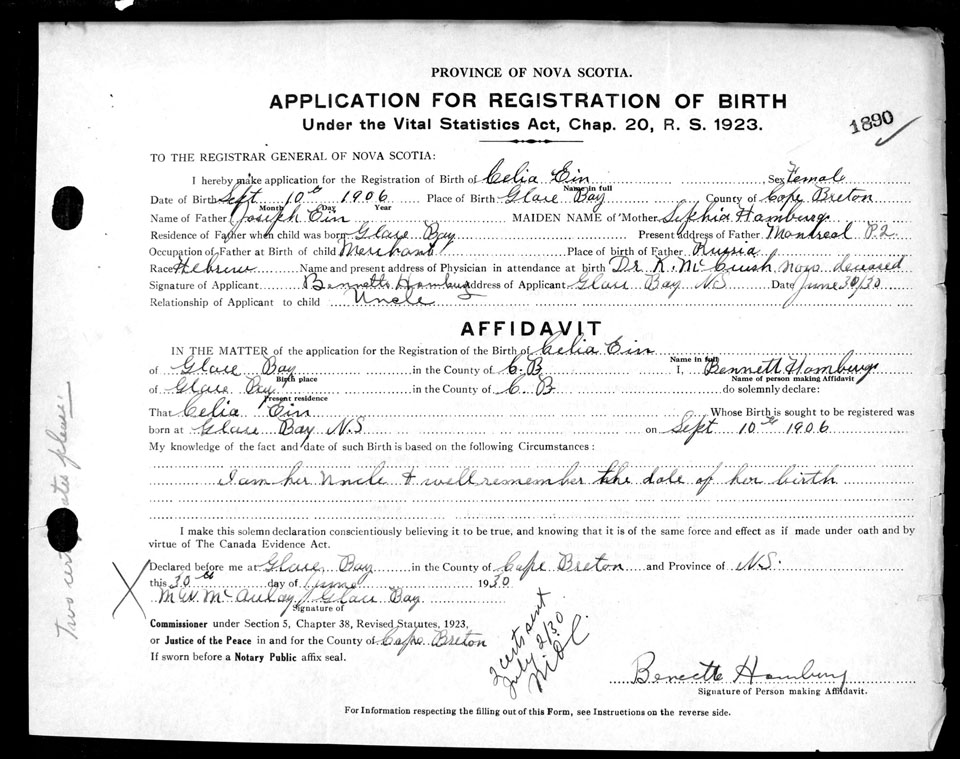 PROVINCE OF NOVA SCOTIA.
APPLICATION FOR REGISTRATION OF BIRTH
Under the Vital Statistics Act, Chap. 20, R. S. 1923.
1890
TO THE REGISTRAR GENERAL OF NOVA SCOTIA:
I hereby make application for the Registration of Birth of Celia Ein Sex Female
Name in full
Date of Birth Sept 10th 1906 Place of Birth Glace Bay County of Cape Breton
Month Day Year
Name of Father Joseph Ein MAIDEN NAME of Mother Sephia Hamburg
Residence of Father when child was born Glace Bay Present address of Father Montreal P.2.
Occupation of Father at Birth of child Merchant Place of birth of Father Russia
Race Hebrew Name and present address of Physician in attendance at birth Dr K. McCuish now deceased
Signature of Applicant Bennett Hamburg Address of Applicant Glace Bay NS Date June 30/30
Relationship of Applicant to child Uncle
AFFIDAVIT
IN THE MATTER of the application for the Registration of the Birth of Celia Ein
Name in full
of Glace Bay in the County of C.B I, Bennett Hamburg
Birth place Name of person making Affidavit
of Glace Bay in the County of C B do solemnly declare:
Present residence
That Celia Ein Whose Birth is sought to be registered was
born at Glace Bay N.S on Sept 10th 1906
My knowledge of the fact and date of such Birth is based on the following Circumstances:
I am her Uncle & well remember the date of her birth
I make this solemn declaration conscientiously believing it to be true, and knowing that it is of the same force and effect as if made under oath and by
virtue of The Canada Evidence Act.
Declared before me at Glace Bay in the County of Cape Breton and Province of N.S.
this 30th day of June 1930
McAulay Glace Bay
Signature of
Commissioner under Section 5, Chapter 38, Revised Statutes, 1923,
or Justice of the Peace in and for the County of Cape Breton
If sworn before a Notary Public affix seal.
2 certs sent
July 2/30
Bennett Hamburg
Signature of Person making Affidavit.
For Information respecting the filling out of this Form, see Instructions on the reverse side.
Two certificates please.